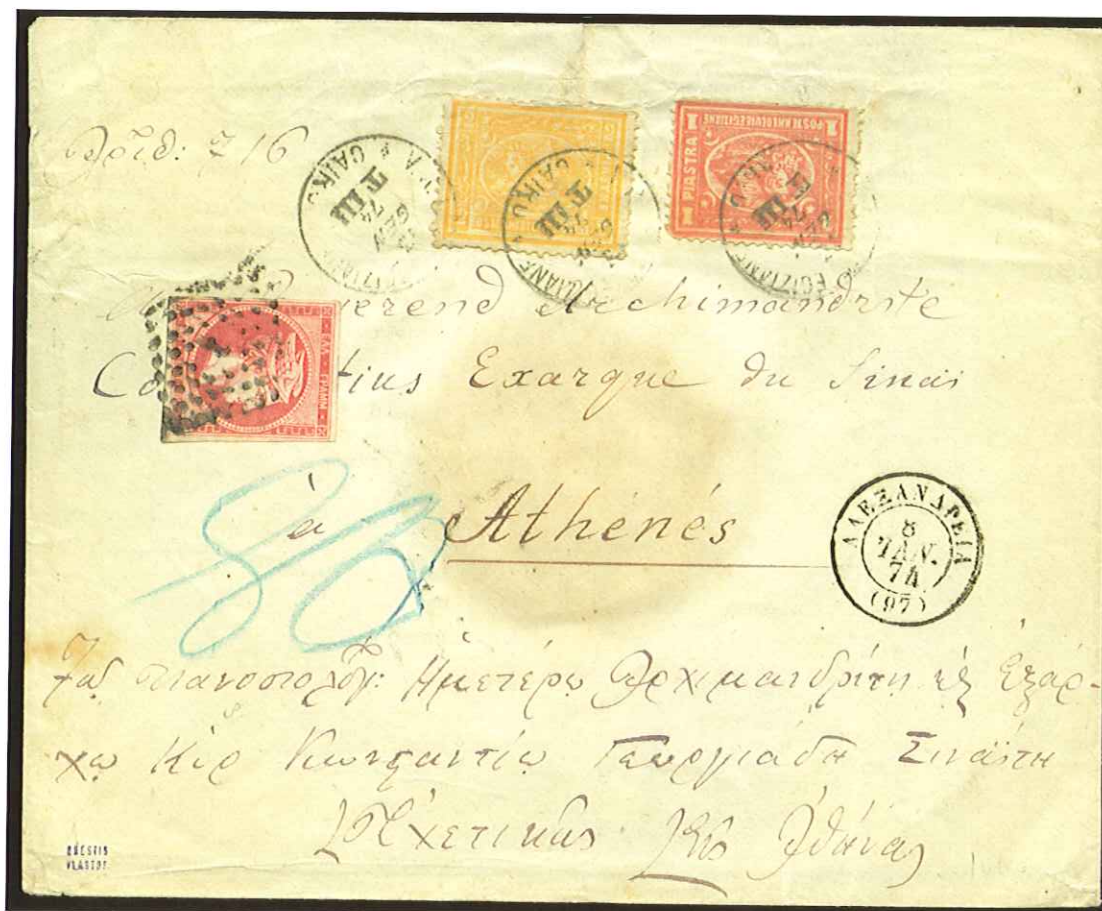 Ἀριθ: 216
CAIRO
T III
GEN
74
1 PIASTRA 1
80 ΛΕΠ.
erend Archimandrite
Co tius Exarque du Sinai
à Athénés
ΑΛΕΞΑΝΔΡΕΙΑ
8
ΙΑΝ.
74
(97)
Τῷ Πανοσιολογ: Ἡμετέρῳ Ἀρχιμανδρίτῃ κὲ Ἐξάρ-
χῳ Κὺρ Κωνσταντίῳ Γεωργιάδῃ Σιναΐτῃ
Εἰς Ἀθήνας
VLASTOS